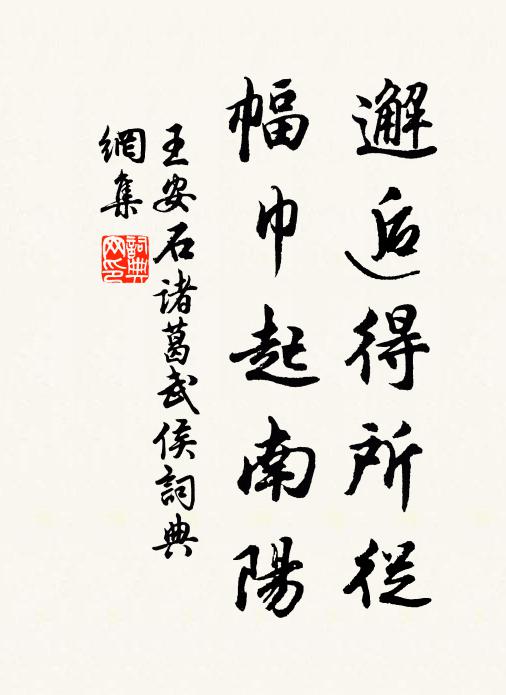 邂逅得所從
幅巾起南陽
王安石諸葛武侯詞典
網集
詞典
网印